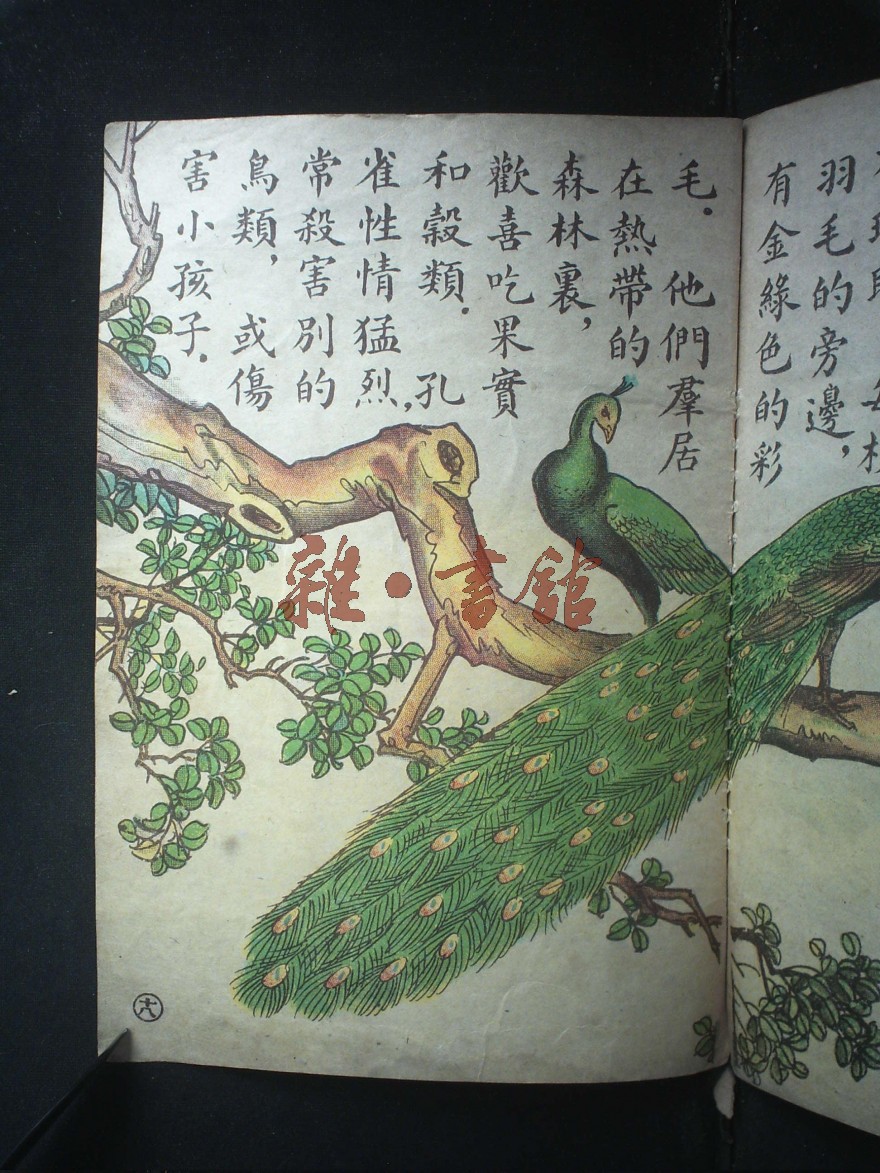 羽毛的旁邊，
有金綠色的彩
毛．他們羣居
在熱帶的
森林裏，
歡喜吃果實
和穀類．孔
雀性情猛烈，
常殺害別的
鳥類，或傷
害小孩子．
雜·書舘
十八